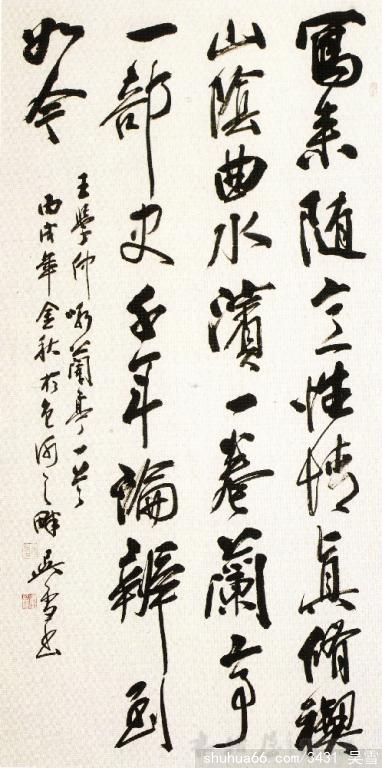 寫来随意性情真脩禊
山陰曲水濱一卷蘭亭
一部史千年論辨到
如今
王學仲咏蘭亭一首
丙戌年金秋於包河之畔吴雪书
shuhua66.com/3431 吴雪